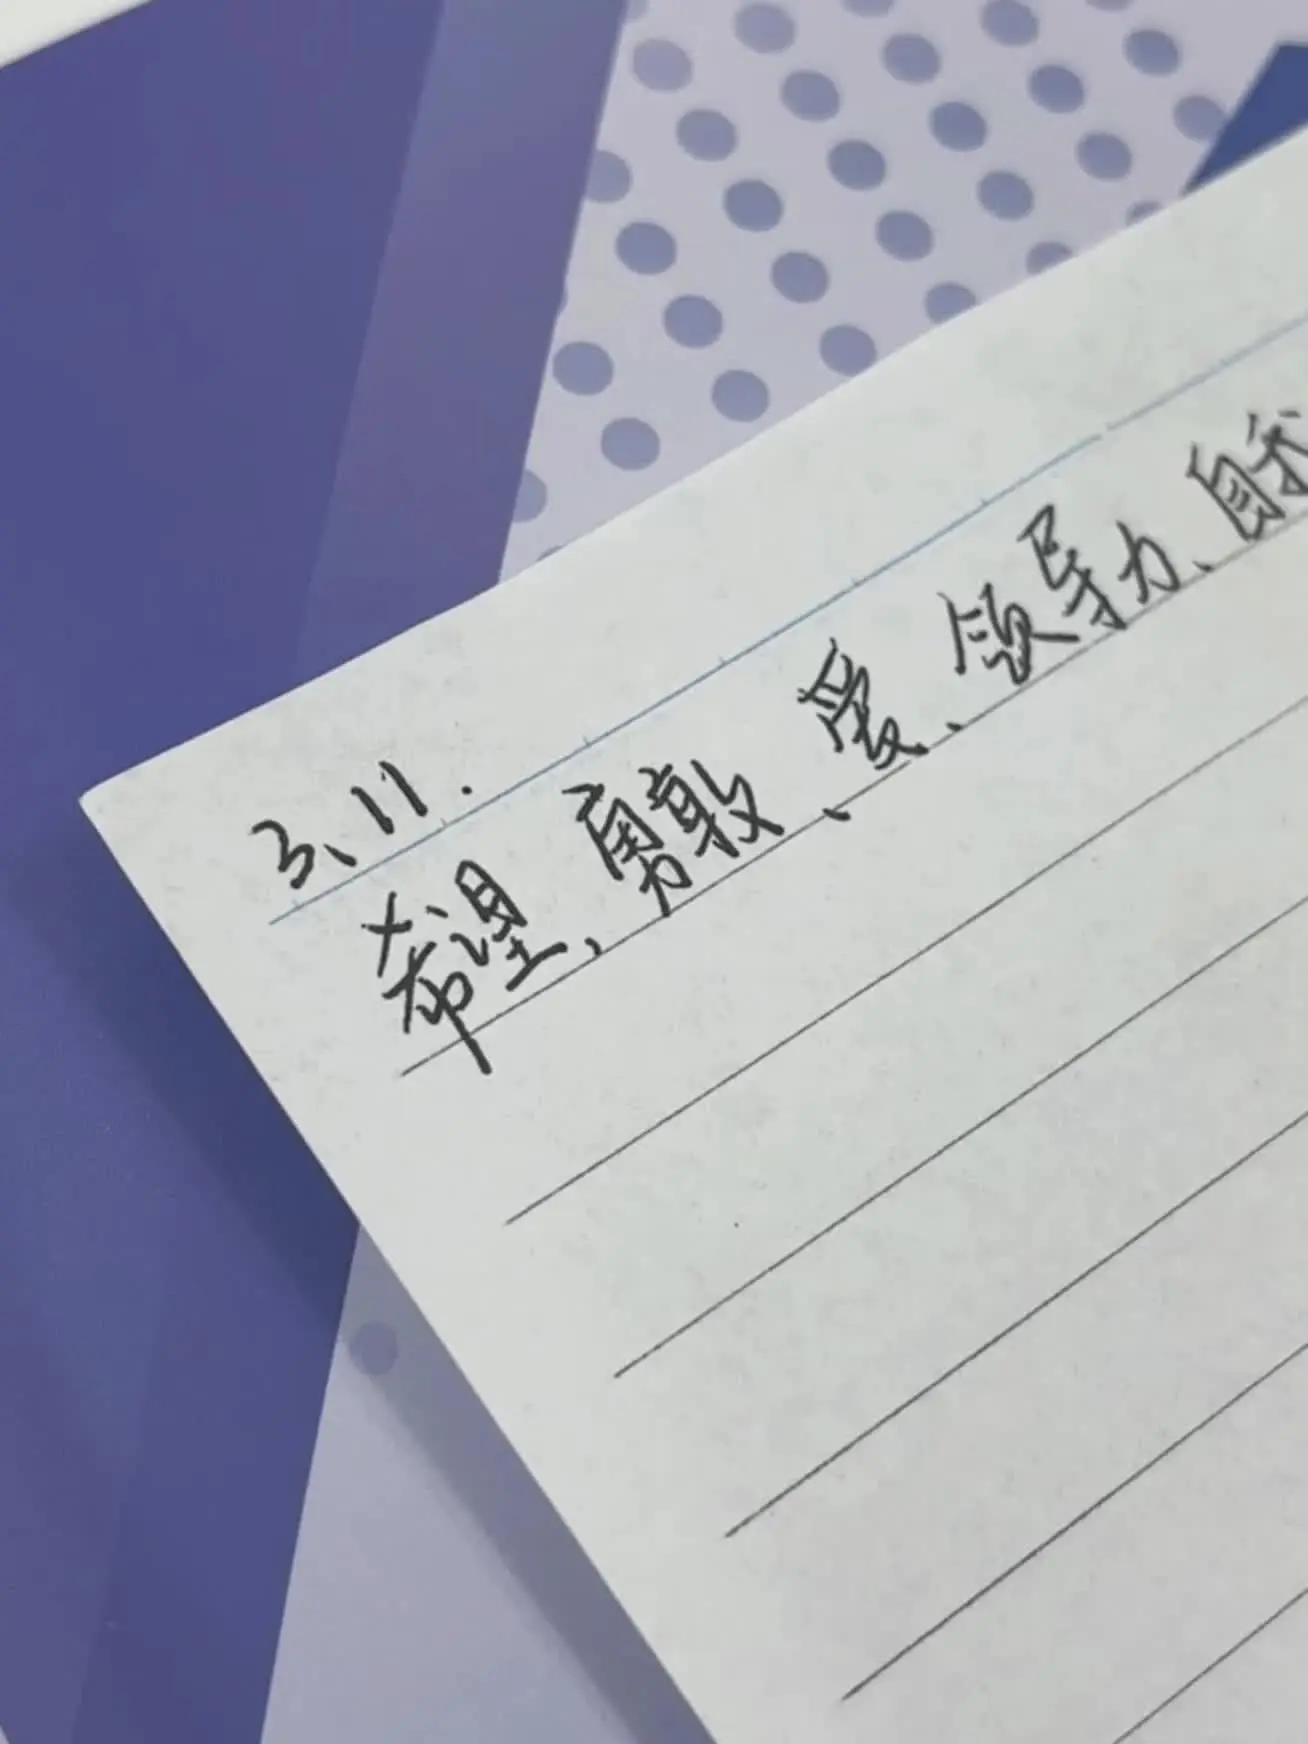 3、11.
希望、勇敢、爱、领导力、自我